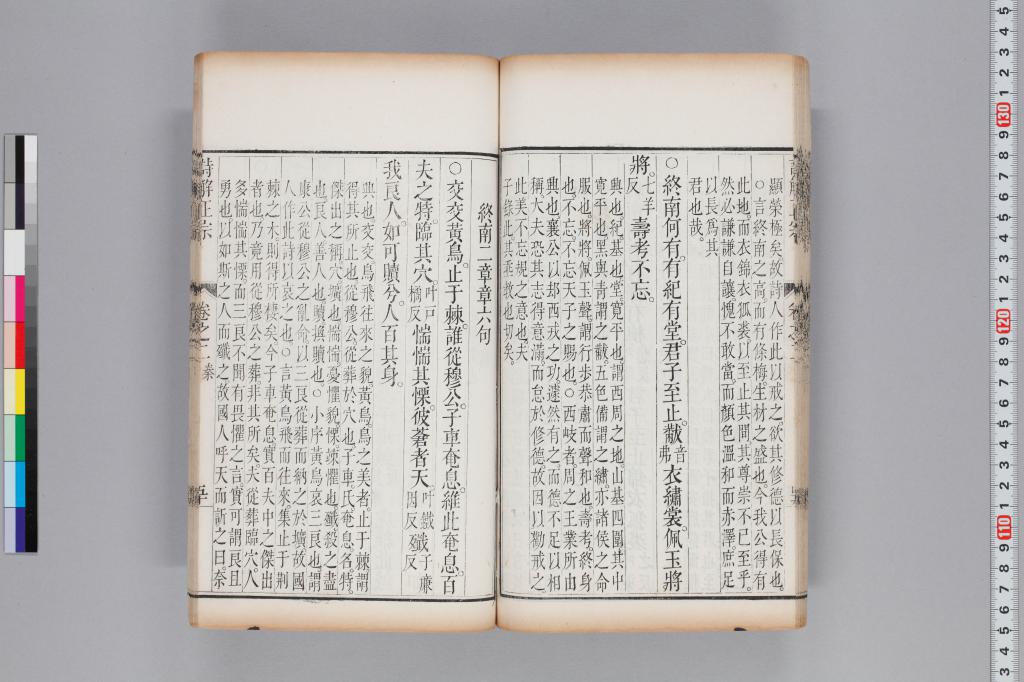 顯榮極矣故詩人作此以戒之欲其修德以長保也。
○言終南之高而有條梅生材之盛也。今我公得有
此地。而衣錦衣狐裘以至止其間其尊崇不已至乎。
然必謙謙自讓愧不敢當。而顏色溫和而赤澤庶足
以長爲其
君也哉。
○終南何有。有紀有堂。君子至止。黻音弗衣繡裳。佩玉將
將。七羊反壽考不忘。
興也紀基也堂寬平也謂西周之地山基四圍其中
寬平也黑與靑謂之黻。五色備謂之繡。亦諸侯之命
服也將將。佩玉聲。謂行步恭肅而聲和也。壽考。終身
也。不忘。不忘天子之賜也。○西岐者。周之王業所由
興也襄公以却西戎之功遽然有之。而德不足以相
稱大夫恐其志得意滿而怠於修德故因以勸戒之
此美不忘規之意也夫
子錄此其垂敎也切矣。
終南二章章六句
○交交黃鳥。止于棘。誰從穆公。子車奄息。維此奄息。百
夫之特。臨其穴。叶戶橘反惴惴其慄。彼蒼者天叶鐵因反殲子廉反
我良人。如可贖兮。人百其身。
興也交交鳥飛往來之貌。黃鳥。鳥之美者。止于棘謂
得其所止也從穆公從葬於穴也子車。氏。奄息。名。特。
傑出之稱穴壙也惴惴憂懼貌慄。竦懼也殲。殺之盡
也良人善人也贖損贖也。○小序黃鳥哀三良也謂
康公從穆公之亂命以三良從葬而納之於壙故國
人作此詩以哀之也。○言黃鳥飛而往來集止于荆
棘之木則得所棲矣今子車奄息實百夫中之傑出
者也乃竟用從穆公之葬非其所矣。夫從葬臨穴。人
多惴惴其慄而三良不聞有畏懼之言。實可謂良且
勇也以如斯之人而殲之故國人呼天而訴之曰。奈
詩解正宗
卷之二
秦